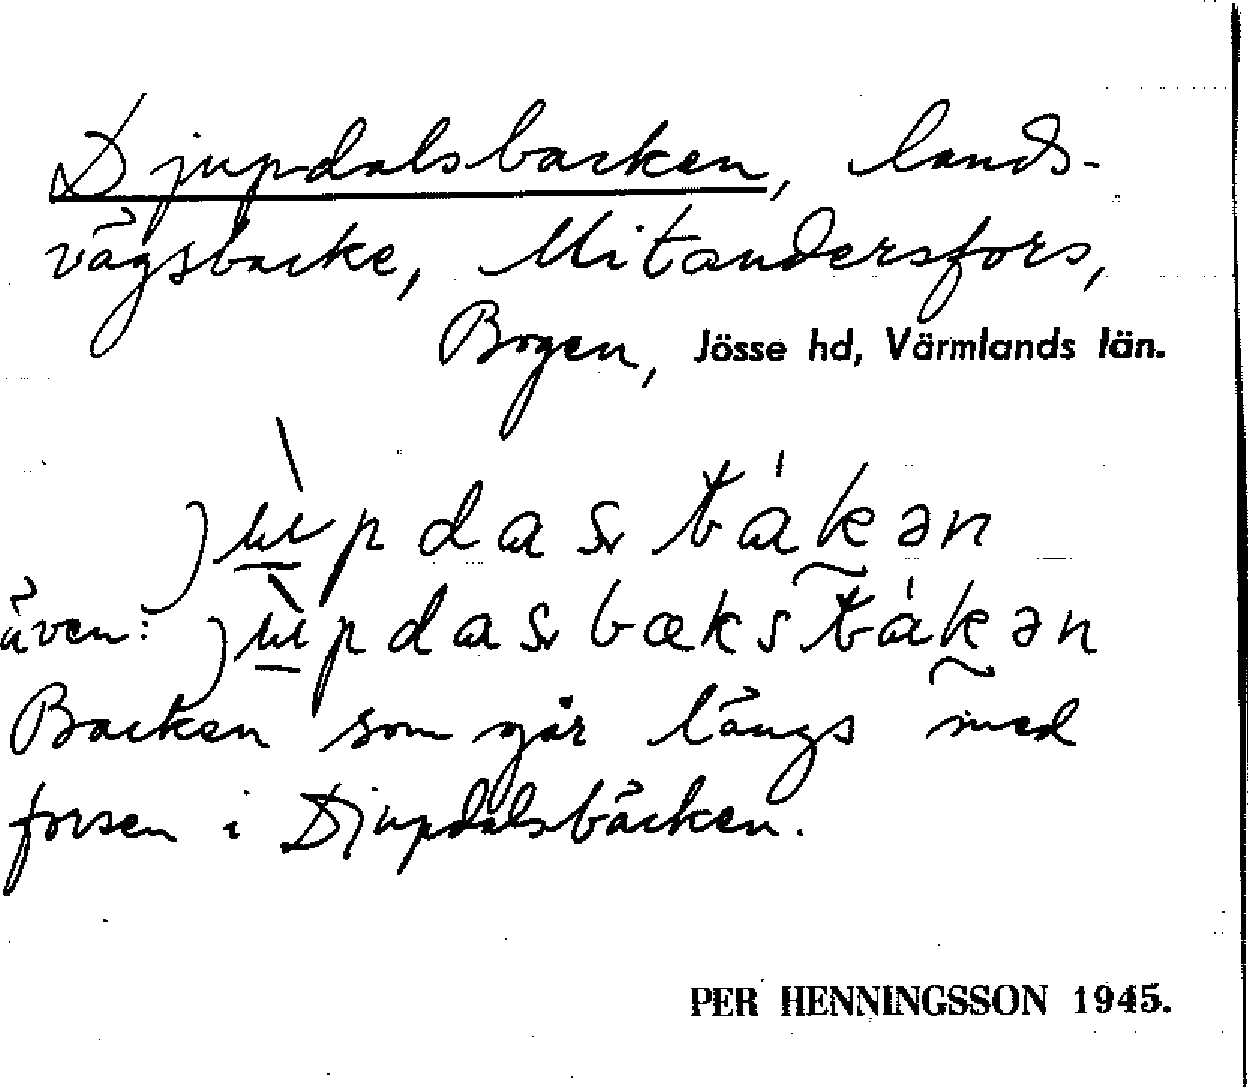 Djupdalsbacken, lands-
vägsbacke, Mitandersfors,
Bogen, Jösse hd, Värmlands län.
även:
Backen som går längs med
forsen i Djupdalsbäcken.
PER HENNINGSSON 1945.